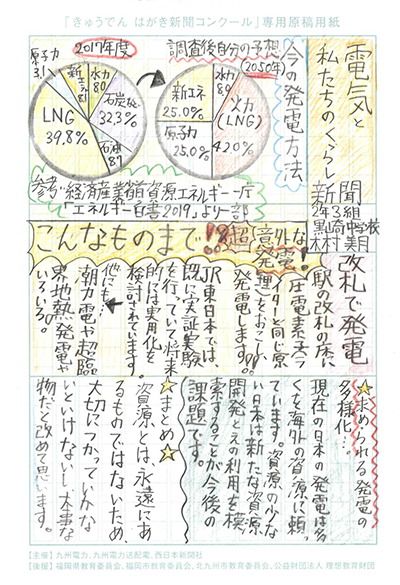 「きゅうでん はがき新聞コンクール」専用原稿用紙
電気と
私たちのくらし
新聞
2年3組
黒崎中学校
今の発電方法
2017年度
原子力
3.1
新エネ
8.1
水力
8.0
石炭
32.3%
LNG
39.8%
石油
8.7
調査後自分の予想
(2050年)
水力
8.0
新エネ
25.0%
原子力
25.0%
火力
(LNG)
42.0%
参考:経済産業省資源エネルギー庁
「エネルギー白書2019」より一部
こんなものまで!?超意外な発電!
改札で発電
駅の改札の床に
圧電素子(ライターと同じ原
発理)をおこし
発電します。
JR東日本では、
既に実証実験
を行っていて将来
的には実用化を
検討されています。
他にも…
潮力電や超臨
界地熱発電や
いろいろ。
☆求められる発電の
多様化…。
現在の日本の発電は多
くを海外の資源に頼っ
ています。資源の少な
い日本は新たな資源
開発とその利用を模
索することが今後の
課題です。
☆まとめ☆
資源とは、永遠にあ
るものではないため、
大切につかっていかな
いといけないし、大事な
物だと改めて思います。
【主催】九州電力、九州電力送配電、西日本新聞社
【後援】福岡県教育委員会、福岡市教育委員会、北九州市教育委員会、公益財団法人 理想教育財団